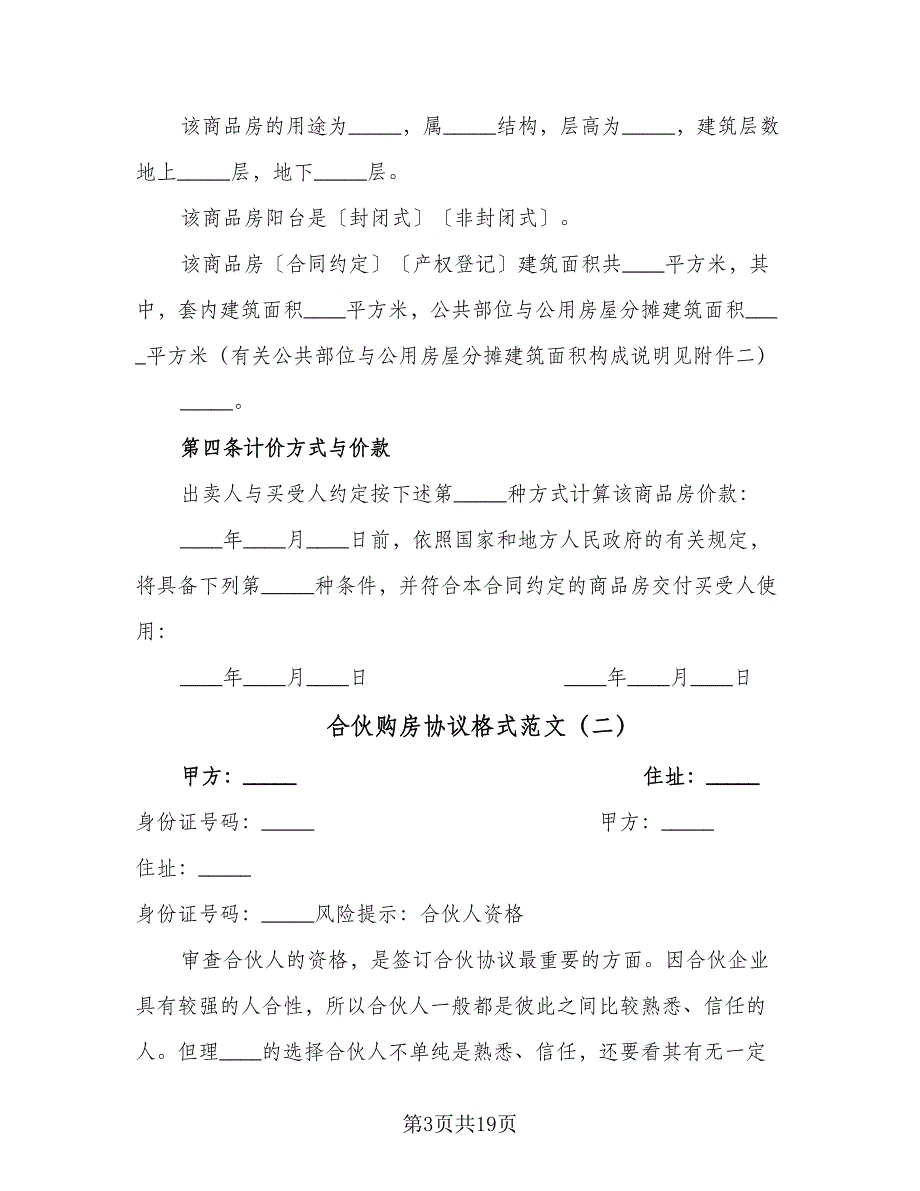 该商品房的用途为_____，属_____结构，层高为_____，建筑层数
地上_____层，地下_____层。
该商品房阳台是〔封闭式〕〔非封闭式〕。
该商品房〔合同约定〕〔产权登记〕建筑面积共____平方米，其
中，套内建筑面积____平方米，公共部位与公用房屋分摊建筑面积___
_平方米（有关公共部位与公用房屋分摊建筑面积构成说明见附件二）
_____。
第四条计价方式与价款
出卖人与买受人约定按下述第_____种方式计算该商品房价款：
____年____月____日前，依照国家和地方人民政府的有关规定，
将具备下列第_____种条件，并符合本合同约定的商品房交付买受人使
用：
____年____月____日 ____年____月____日
合伙购房协议格式范文（二）
甲方：_____ 住址：_____
身份证号码：_____ 甲方：_____
住址：_____
身份证号码：_____风险提示：合伙人资格
审查合伙人的资格，是签订合伙协议最重要的方面。因合伙企业
具有较强的人合性，所以合伙人一般都是彼此之间比较熟悉、信任的
人。但理____的选择合伙人不单纯是熟悉、信任，还要看其有无一定
第3页共19页